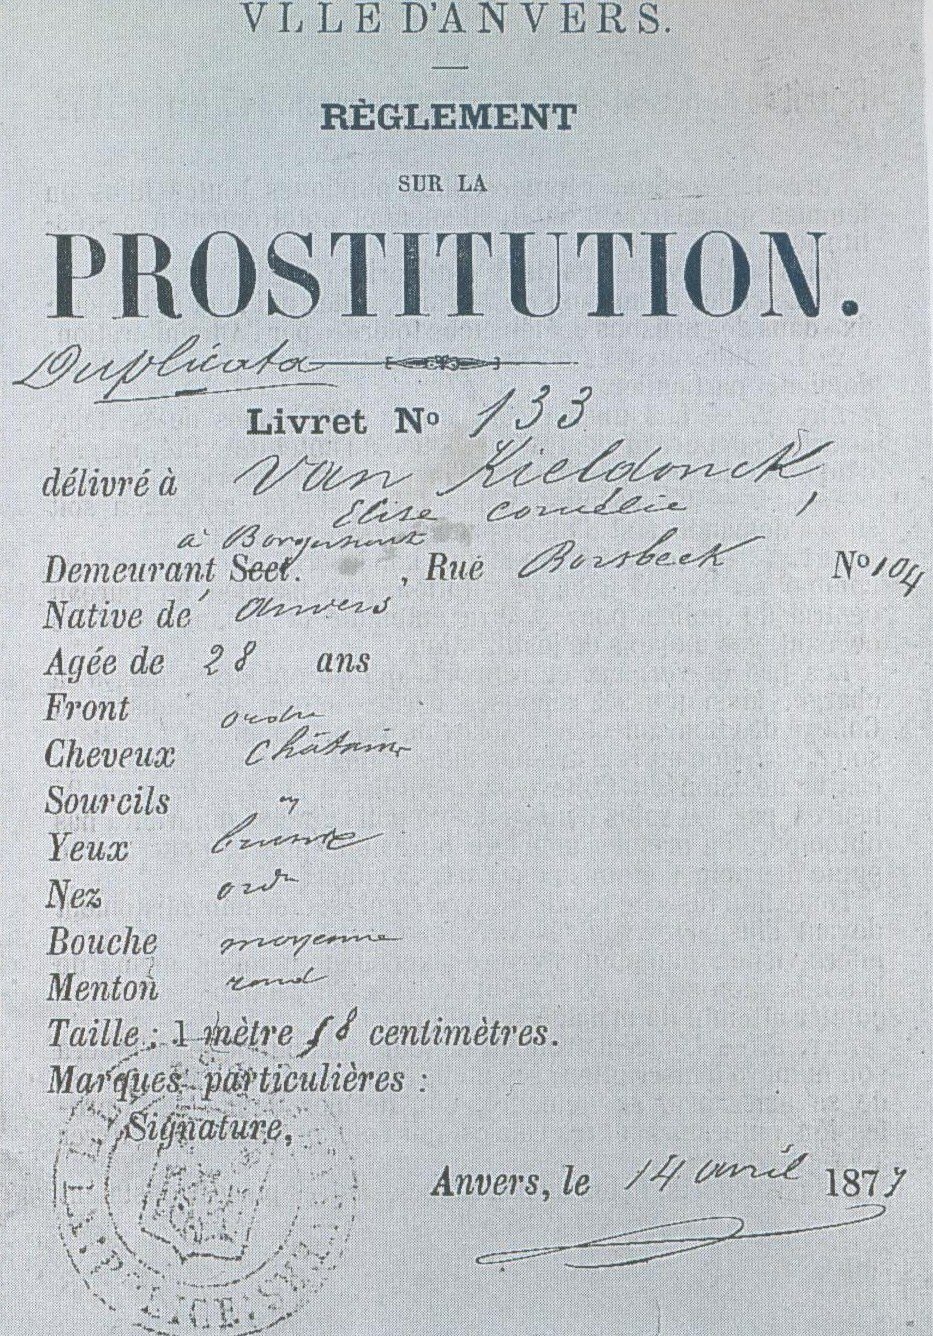 VLLE D'ANVERS.
RÈGLEMENT
SUR LA
PROSTITUTION.
Duplicata
Livret Nº 133
délivré à Van Kieldonck
Elise Cornélie
à Borgerhout
Demeurant Sect. , Rue Borsbeek Nº 104
Native de Anvers
Agée de 28 ans
Front ordre
Cheveux Châtains
Sourcils "
Yeux bruns
Nez ordre
Bouche moyenne
Menton rond
Taille : 1 mètre 58 centimètres.
Marques particulières :
Signature,
Anvers, le 14 avril 1877